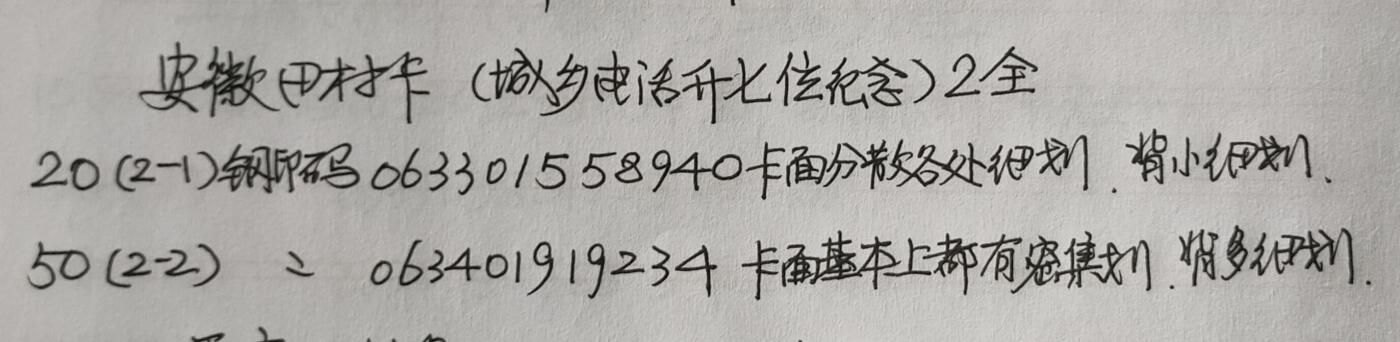 安徽田村卡（城乡电话升七位纪念）2全
20(2-1)钢印码063301558940卡面分散各处细划、背小细划、
50(2-2) 〃 063401919234卡面基本上都有密集划、背多细划、